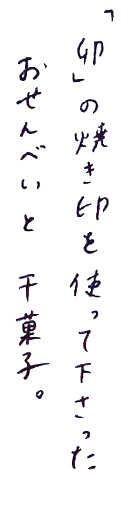 「卯」の焼き印を使って下さった
おせんべいと 干菓子。